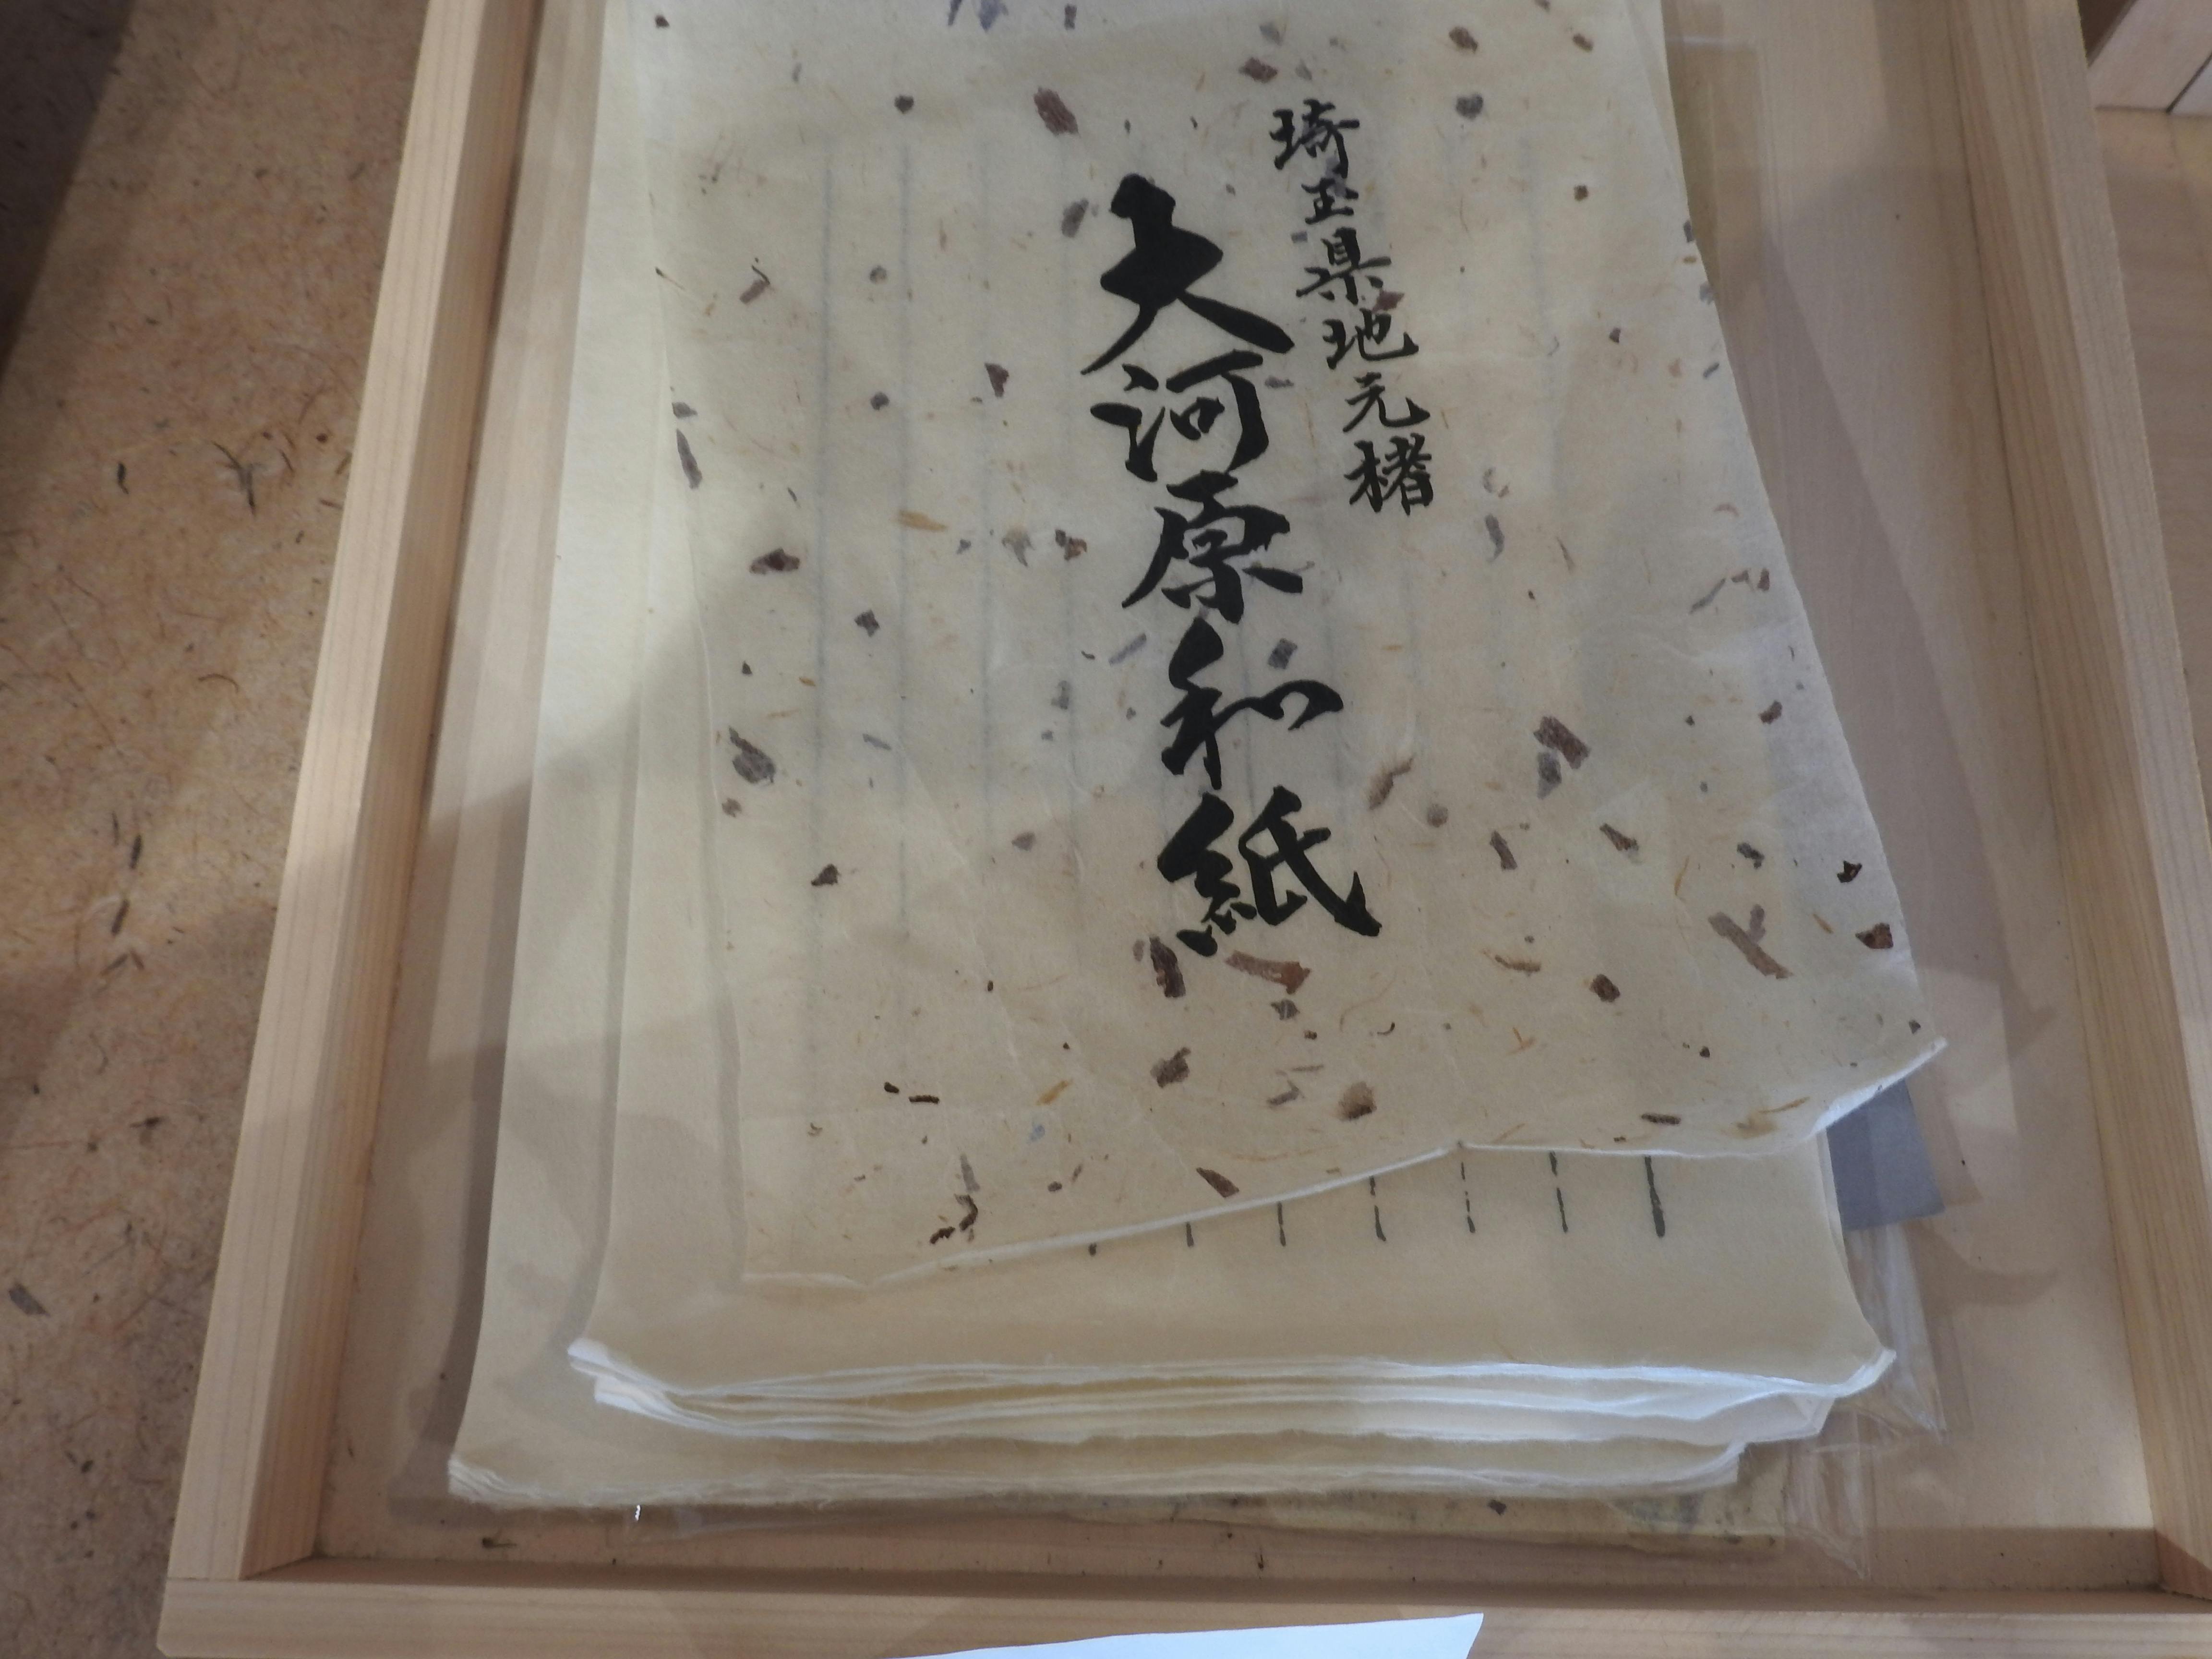 埼玉県地元楮
大河原和紙